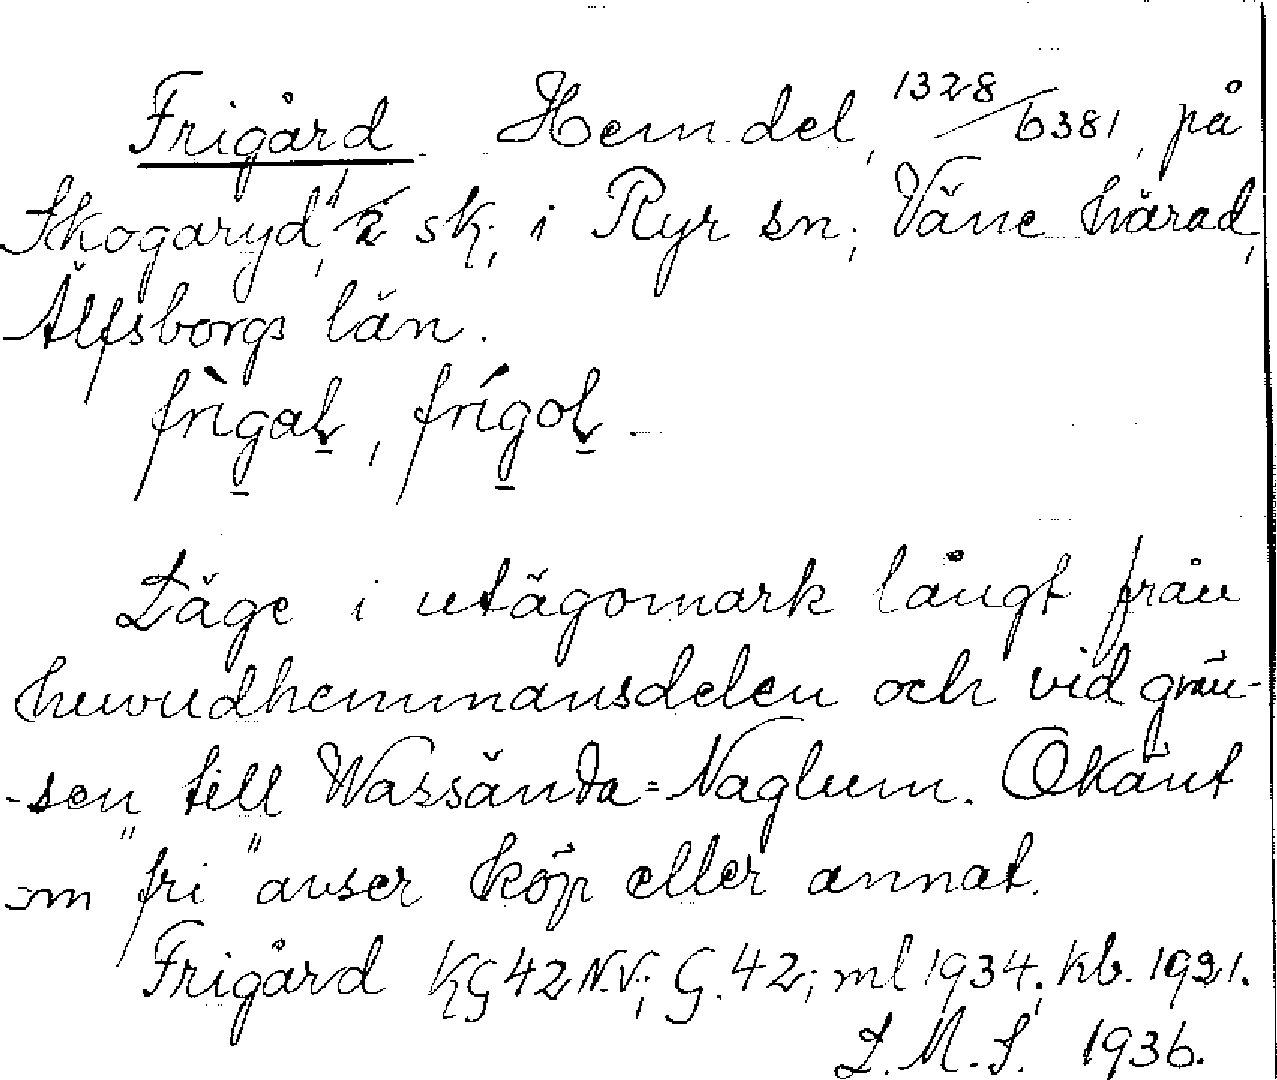 Frigård Hem.del, 1328/6381, på
Skogaryd, 1/2 sk, i Ryr sn, Väne härad,
Älfsborgs län.
frìgaƚ, frígoƚ –
Läge i utägomark långt från
huvudhemmansdelen och vid grän-
sen till Wassända=Naglum. Okänt
om "fri" avser köp eller annat.
Frigård KG 42 N.V; G. 42; ml 1934; kb. 1921.
L.M.S. 1936.